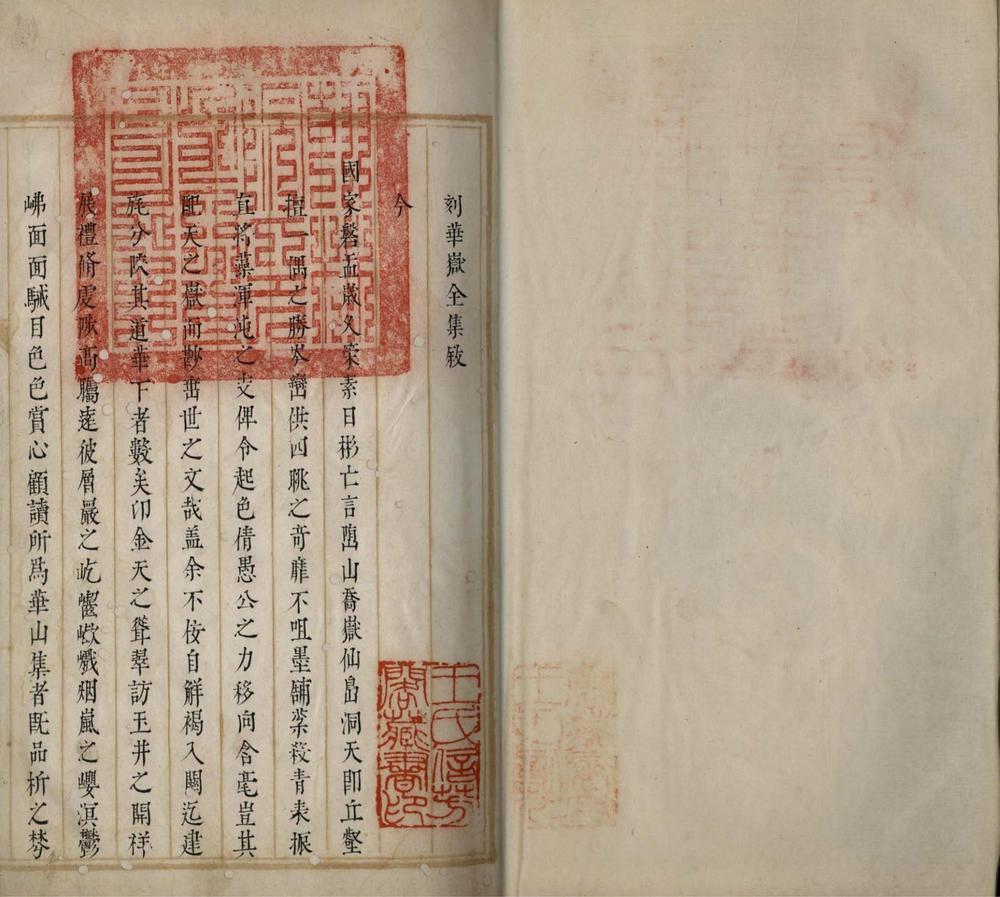 刻華嶽全集敘
今
國家磐盂歲久案素日彬亡言嵩山喬嶽仙島洞天即丘壑
擅一偶之勝岑巒供四眺之奇靡不咀墨舖棻殺青表振
直將藻渾沌之支俾令起色倩愚公之力移向含毫豈其
配天之嶽而尠蓄世之文哉盖余不佞自解褐入關迄建
旄分陝其道華下者數矣卬金天之聳翠訪玉井之開祥
展禮脩虔陟高騰遠彼層巖之屹崷嶔巇烟嵐之巊溟鬱
岪面面駴目色色賞心顧讀所為華山集者旣品析之棼
王氏信芳閣藏書印